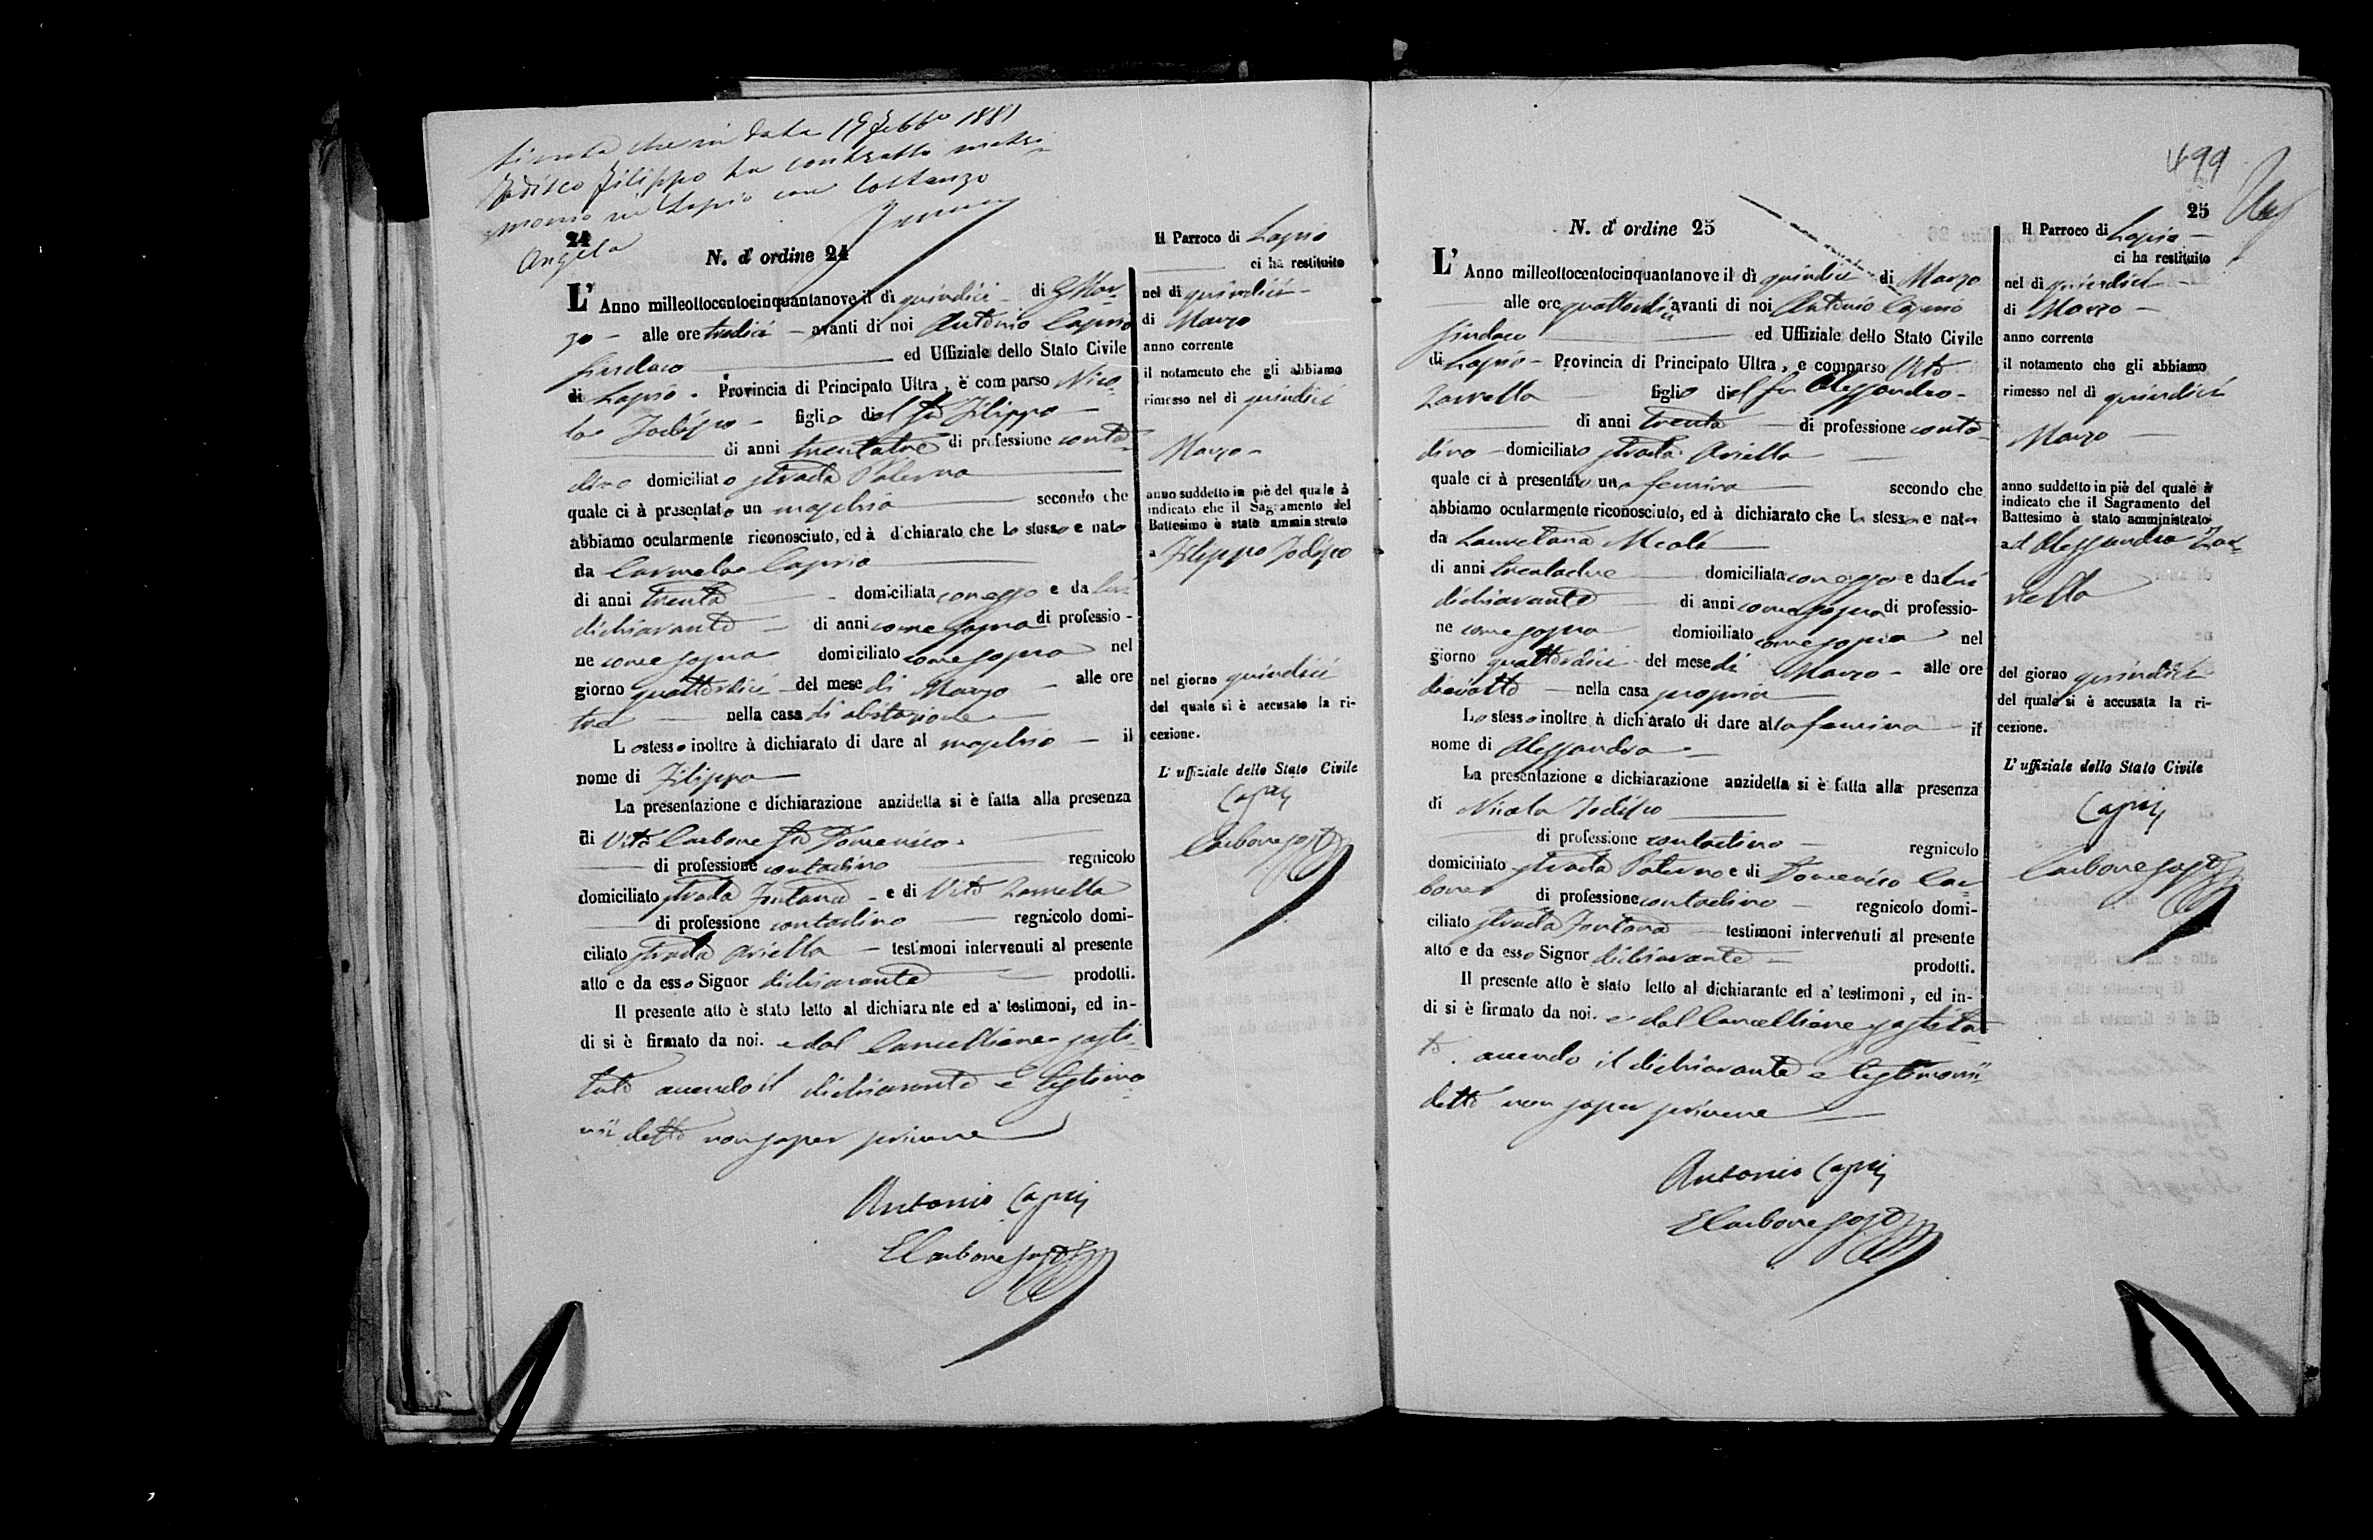 Si nota che in data 19 Febb° 1881
Jodisco Filippo ha contratto matri-
monio in Lapio con Costanzo
Angela
24
N. d'ordine 24
L' Anno milleottocentocinquantanove il dì quindici di Mar-
zo - alle ore tredici - avanti di noi Antonio Caprio
Sindaco ed Uffiziale dello Stato Civile
di Lapio - Provincia di Principato Ultra, è comparso Nico-
la Jodisco - figlio del fu Filippo -
di anni trentatre di professione conta-
dino domiciliato strada Paterno
quale ci à presentato un maschio secondo che
abbiamo ocularmente riconosciuto, ed à dichiarato che lo stesso e nato
da Carmela Caprio
di anni trenta domiciliata con esso e da lui
dichiarante - di anni come sopra di professio-
ne come sopra domiciliato come sopra nel
giorno quattordici del mese di Marzo - alle ore
tre nella casa di abitazione
Lo stesso inoltre à dichiarato di dare al maschio - il
nome di Filippo
La presentazione e dichiarazione anzidetta si è fatta alla presenza
di Vito Carbone fu Domenico
di professione contadino regnicolo
domiciliato strada Fontana - e di Vito Zarrella
di professione contadino regnicolo domi-
ciliato strada Ariella - testimoni intervenuti al presente
atto e da esso Signor dichiarante prodotti.
Il presente atto è stato letto al dichiarante ed a' testimoni, ed in-
di si è firmato da noi. e dal Cancelliere sosti-
tuto avendo il dichiarante e testimo-
nii detto non saper scrivere
Antonio Caprio
E Carbone sost°
Il Parroco di Lapio
ci ha restituito
nel dì quindici -
di Marzo
anno corrente
il notamento che gli abbiamo
rimesso nel dì quindici
Marzo -
anno suddetto in piè del quale à
indicato che il Sagramento del
Battesimo è stato amministrato
a Filippo Jodisco
nel giorno quindici
del quale si è accusato la ri-
cezione.
L' uffiziale dello Stato Civile
Caprio
Carbone sost°
499
25
N. d'ordine 25
L' Anno milleottocentocinquantanove il dì quindici di Marzo
alle ore quattordici avanti di noi Antonio Caprio
Sindaco ed Uffiziale dello Stato Civile
di Lapio - Provincia di Principato Ultra, e comparso Vito
Zarrella figlio del fu Alessandro -
di anni trenta - di professione conta-
dino - domiciliato strada Ariella
quale ci à presentato una femina secondo che
abbiamo ocularmente riconosciuto, ed à dichiarato che la stessa e nata
da Lauretana Meola
di anni trentadue domiciliata con esso e da lui
dichiarante di anni come sopra di professio-
ne come sopra domiciliato come sopra nel
giorno quattordici del mese di Marzo - alle ore
diciotto - nella casa propria
Lo stesso inoltre à dichiarato di dare alla femina - il
nome di Alessandra -
La presentazione e dichiarazione anzidetta si è fatta alla presenza
di Nicola Jodisco
di professione contadino - regnicolo
domiciliato strada Paterno e di Domenico Car-
bone di professione contadino - regnicolo domi-
ciliato strada Fontana - testimoni intervenuti al presente
atto e da esso Signor dichiarante - prodotti.
Il presente atto è stato letto al dichiarante ed a' testimoni, ed in-
di si è firmato da noi. e dal Cancelliere sostitu-
to. avendo il dichiarante e testimonii
detto non saper scrivere
Antonio Caprio
E Carbone sost°
Il Parroco di Lapio -
ci ha restituito
nel dì quindici -
di Marzo -
anno corrente
il notamento che gli abbiamo
rimesso nel dì quindici
Marzo -
anno suddetto in piè del quale à
indicato che il Sagramento del
Battesimo è stato amministrato
ad Alessandra Zar-
rella
del giorno quindici
del quale si è accusata la ri-
cezione.
L' uffiziale dello Stato Civile
Caprio
Carbone sost°